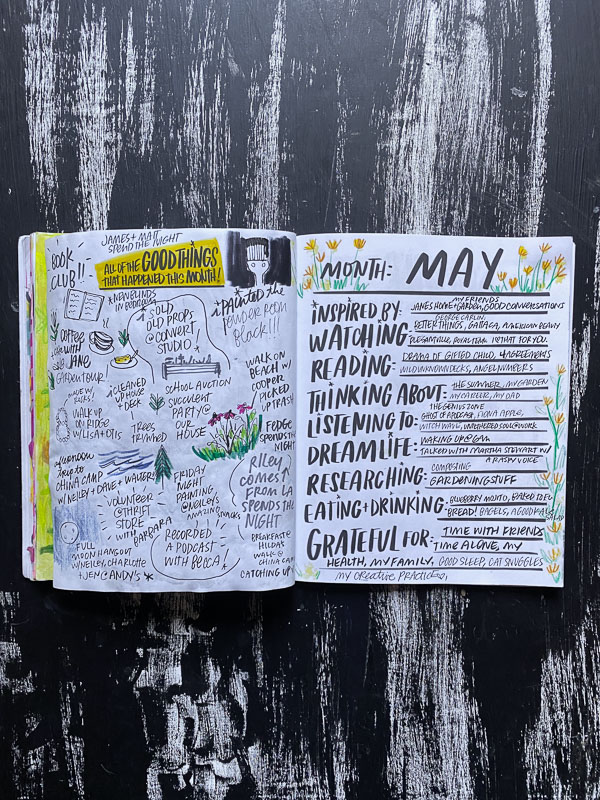 JAMES + MATT
SPEND THE NIGHT
BOOK
CLUB!!-
ALL OF THE GOOD THINGS
THAT HAPPENED THIS MONTH!
*NEW BLINDS
IN BEDROOM
* SOLD
OLD PROPS
@ CONVERT
STUDIO
*I PAINTED the
POWDER ROOM
BLACK!!!
COFFEE
DATE WITH
JANE
GARDEN TOUR!
*I CLEANED
UP HOUSE
+ DECK
SCHOOL AUCTION
SUCCULENT
PARTY @
OUR
HOUSE
WALK ON
BEACH W/
COOPER
PICKED
UP TRASH
WALK UP
ON RIDGE
W/LISA + OTIS
TREES
TRIMMED
SPENDS THE
NIGHT
AFTERNOON
TRIP TO
CHINA CAMP
W/NEILEY + DAVE + WALTER
VOLUNTEER
@ THRIFT
STORE
WITH BARBARA
FRIDAY
NIGHT
PAINTING
@ NEILEY'S
AMAZING SNACKS
RILEY
COMES
FROM LA
SPENDS THE
NIGHT
FULL
MOON HANGOUT
W/NEILEY, CHARLOTTE
+ JEN CANDY'S *
RECORDED
A PODCAST
WITH BECCA!
BREAKFAST @
HILDA'S
WALK @
CHINA CAMP
CATCHING UP
MONTH: MAY
INSPIRED BY: MY FRIENDS
JAMES HOME + GARDEN, GOOD CONVERSATIONS
WATCHING: GEORGE CARLIN,
BETTER THINGS, GATTACA, AMERICAN BEAUTY
PLEASANTVILLE,
READING: DRAMA OF GIFTED CHILD, 4 AGREEMENTS
WILD UNKNOWN DECKS, ANGEL NUMBERS
THINKING ABOUT: THE SUMMER, MY GARDEN
MY CAREER, MY DAD
LISTENING TO: THE GENIUS ZONE
GHOST OF A PODCAST, FIONA APPLE,
WITCH WAVE, UNTETHERED SOUL @ WORK
DREAM LIFE: WAKING UP @ 6AM
TALKED WITH MARTHA STEWART W/
A RASPY VOICE
RESEARCHING: COMPOSTING
GARDENING STUFF
EATING + DRINKING: BLUEBERRY MOJITO, BAKED TOFU
BREAD! BAGELS, A GOOD KALE SALAD
GRATEFUL FOR: TIME WITH FRIENDS
TIME ALONE, MY
HEALTH, MY FAMILY, GOOD SLEEP, CAT SNUGGLES
MY CREATIVE PRACTICE,